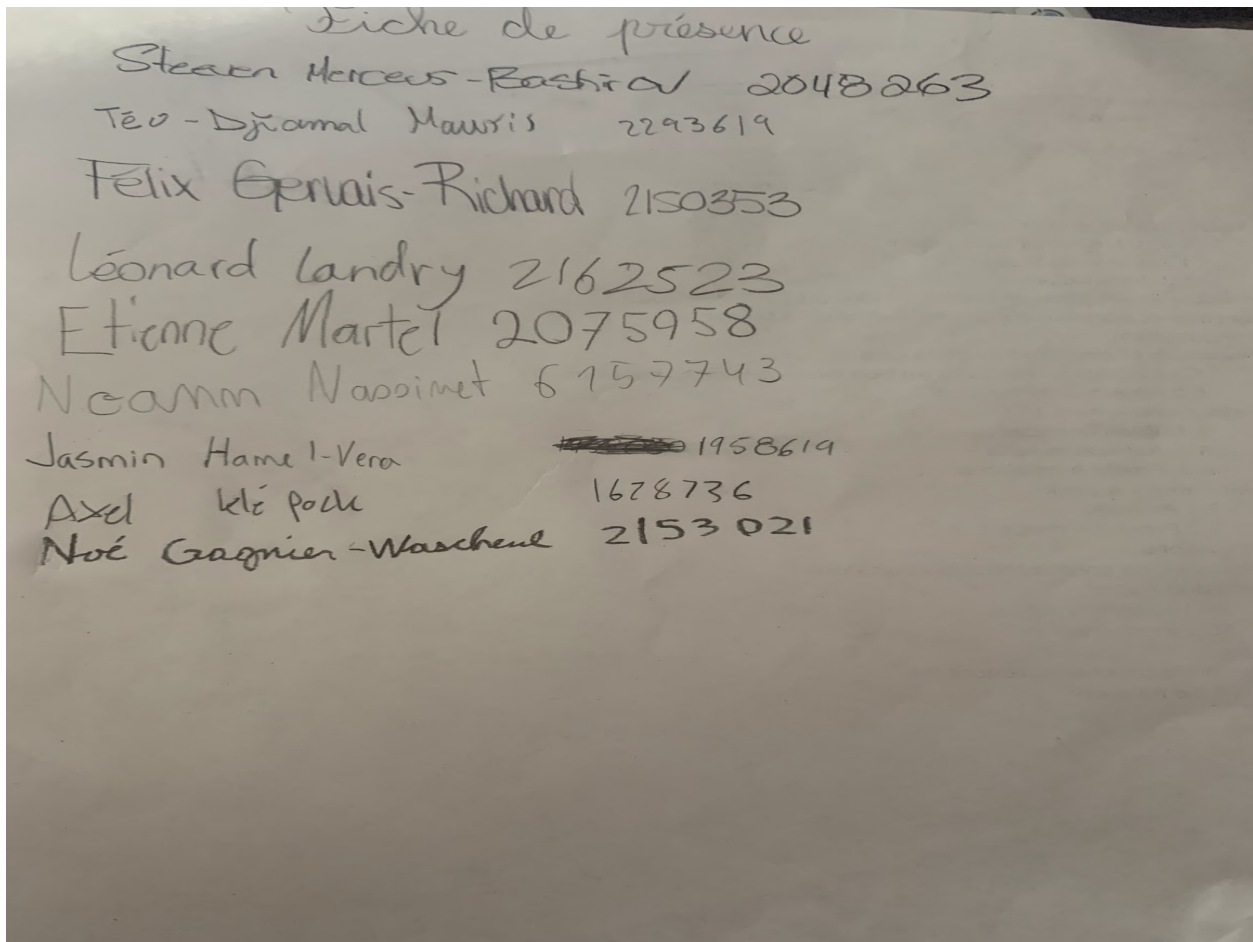 Fiche de présence
Steeven 2048263
Téo-Djiamal Mauris 2293619
Félix Gervais-Richard 2150353
Léonard Landry 2162523
Etienne Martel 2075958
Noamm Nassimet 6157743
Jasmin Hamel-Vera 1958619
Axel 1628736
Noé Gagnier-Wascheul 2153021